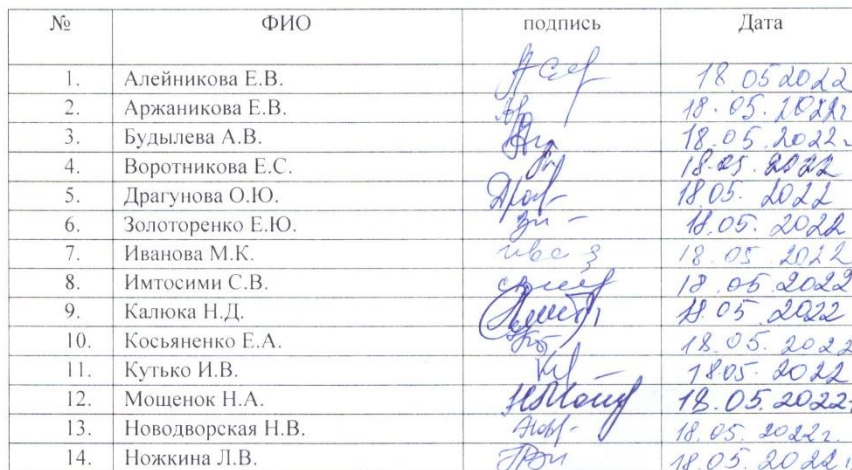 № ФИО подпись Дата
1. Алейникова Е.В. 18.05 2022
2. Аржаникова Е.В. 18.05.2022г
3. Будылева А.В. 18.05.2022г
4. Воротникова Е.С. 18.05.2022
5. Драгунова О.Ю. 18.05.2022
6. Золоторенко Е.Ю. 18.05.2022
7. Иванова М.К. 18.05.2022
8. Имтосими С.В. 18.05.2022
9. Калюка Н.Д. 18.05 2022
10. Косьяненко Е.А. 18.05.2022
11. Кутько И.В. 1805.2022
12. Мощенок Н.А. 18.05.2022г
13. Новодворская Н.В. 18.05.2022г.
14. Ножкина Л.В. 18.05.2022г